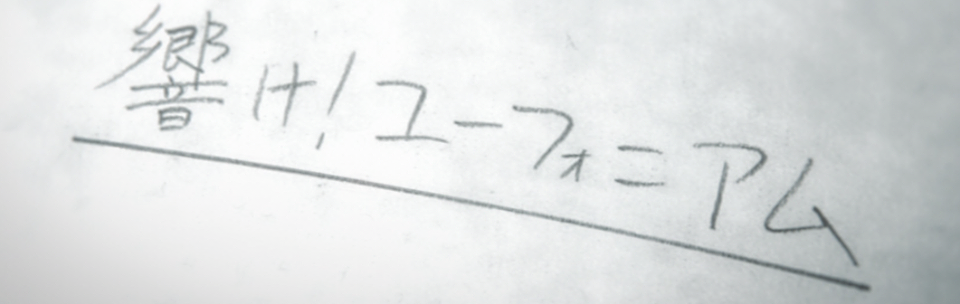 響け!ユーフォニアム